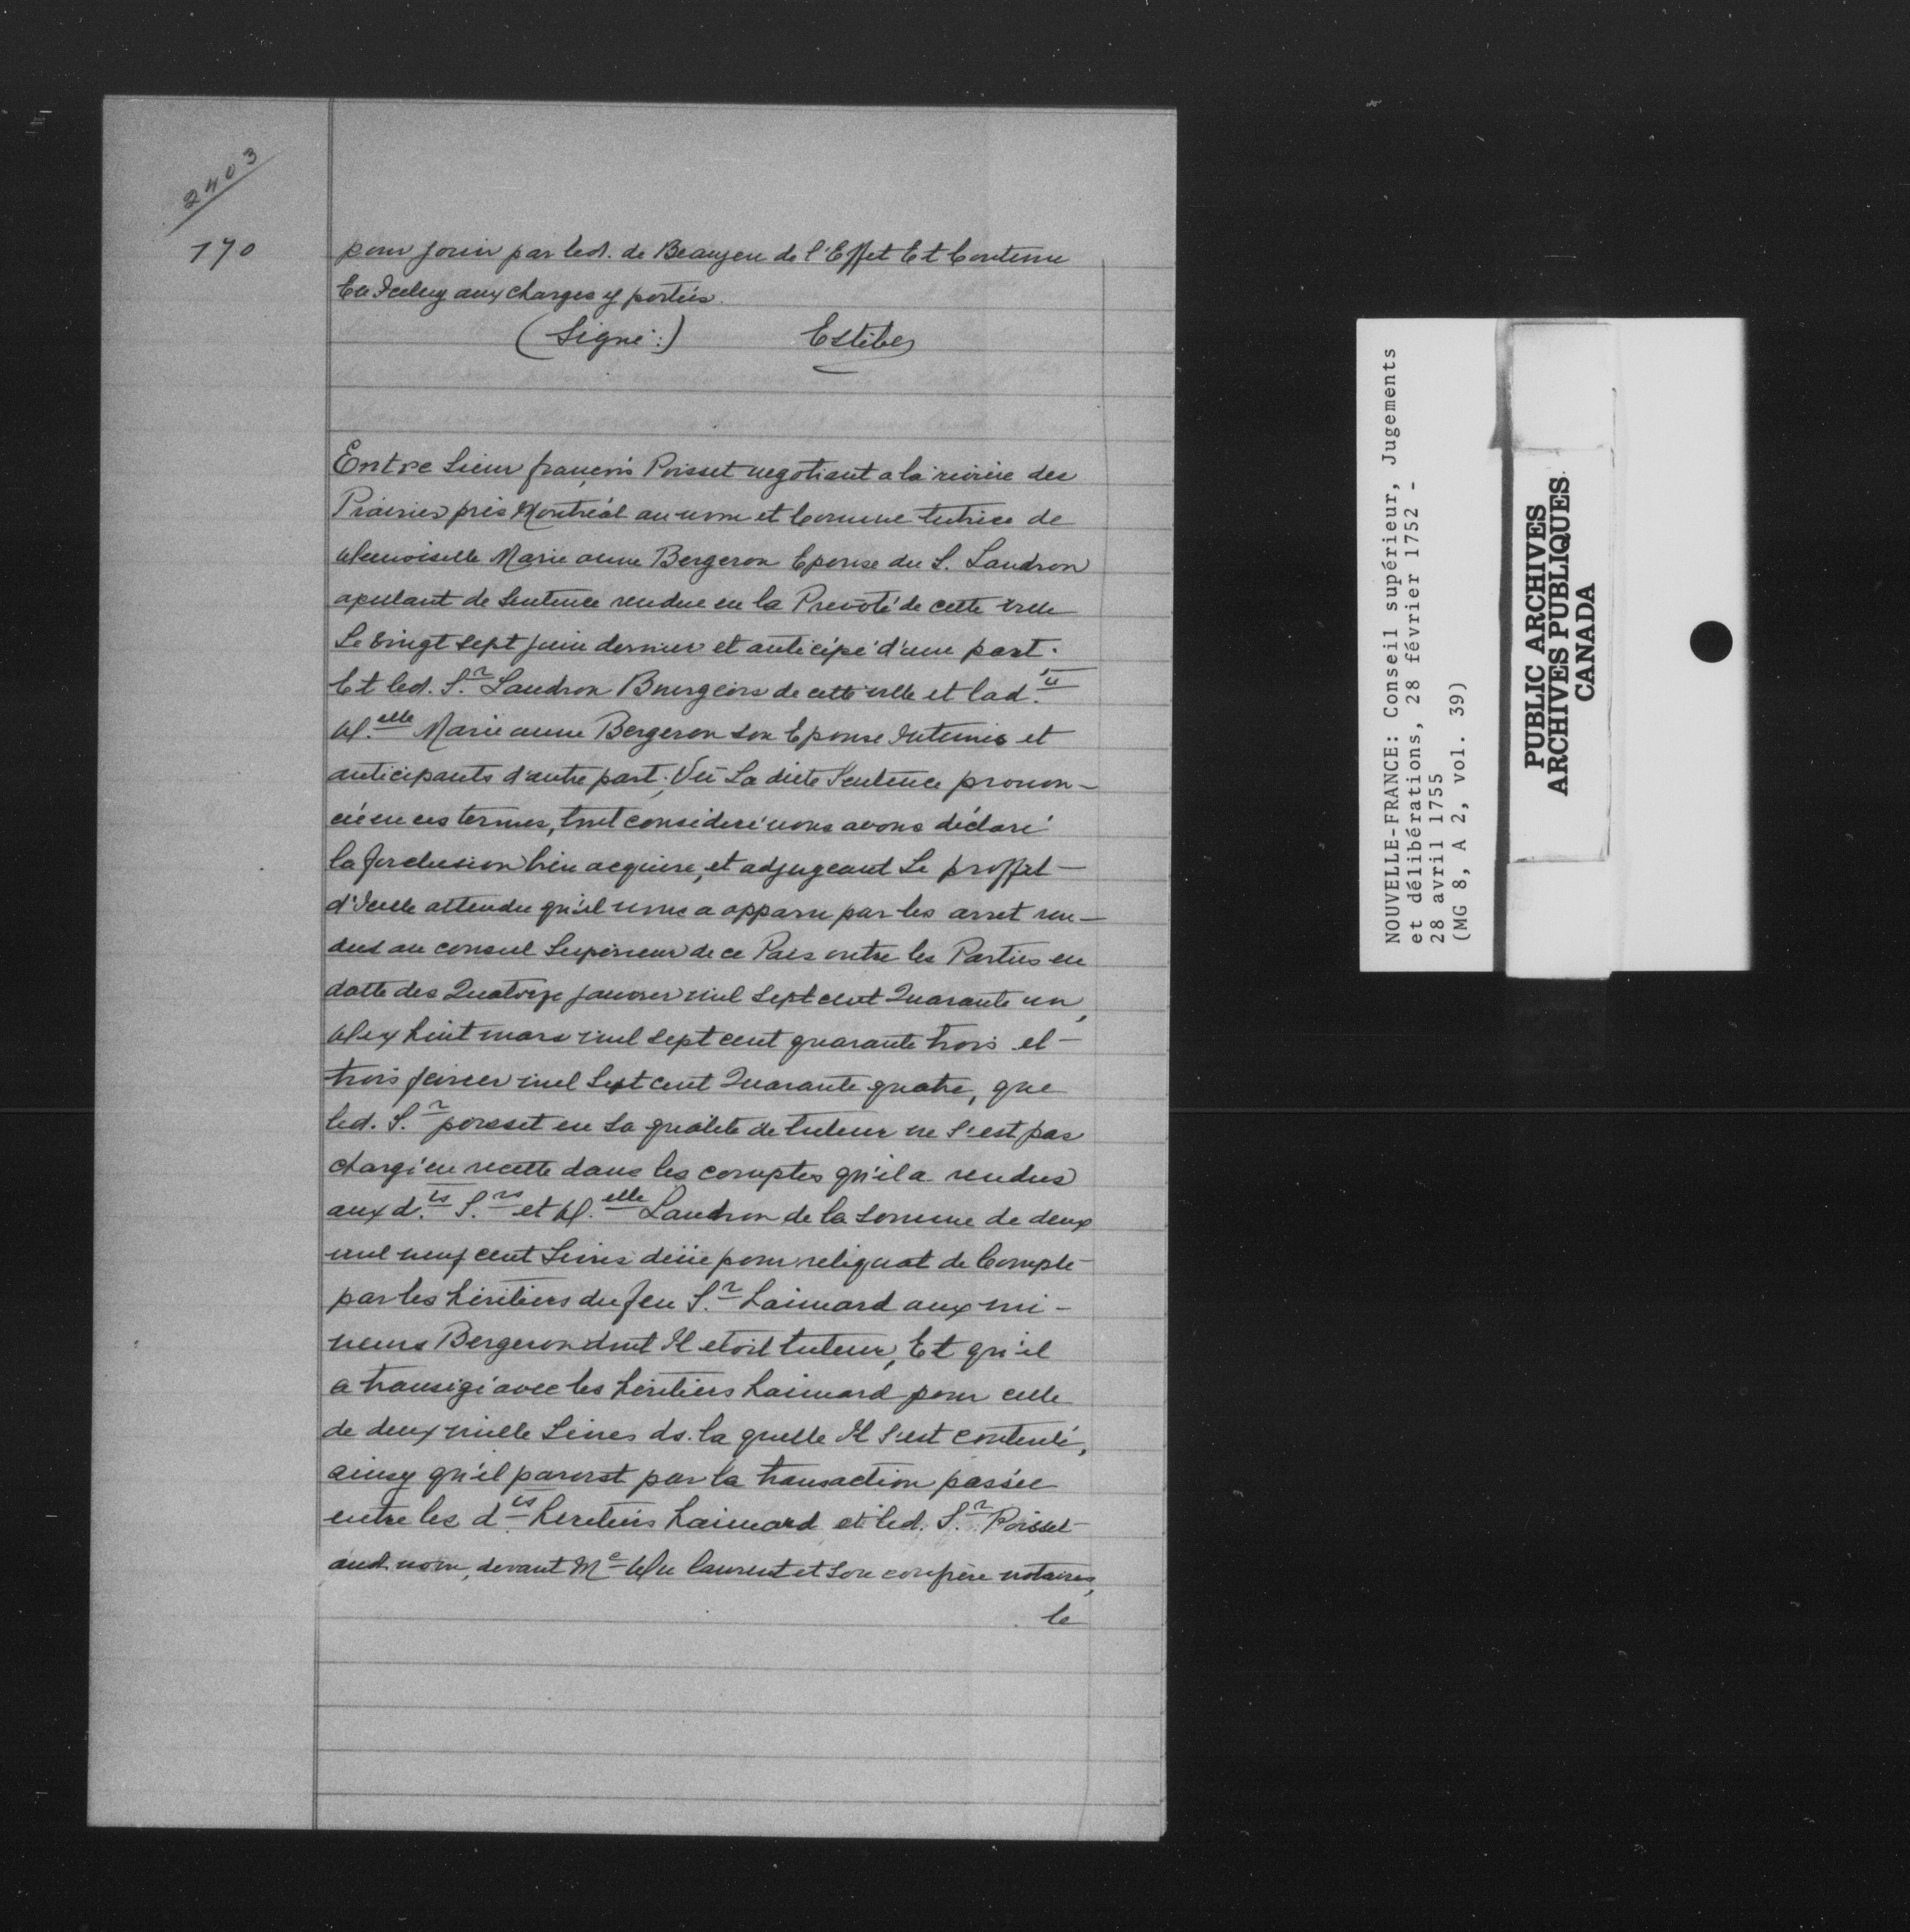 2403
170
pour jouir par led. de Beaujeu de l'Effet Et Contenu
En Iceluy aux charges y portées.
(Signé:) Estèbe
Entre Sieur françois Poisset negotiant a la riviere des
Prairies près Montréal au nom et Comme tutrice de
Demoiselle Marie anne Bergeron Epouse du S. Landron
apellant de Sentence rendue en la Prevoté de cette ville
Le Vingt Sept juin dernier et anticipé d'une part.
Et led. S.r Landron Bourgeois de cette ville et lad.te
D.elle Marie anne Bergeron son Epouse Intimés et
anticipants d'autre part; Vû La dite Sentence pronon-
cée en ces termes, tout consideré nous avons déclaré
la forclusion bien acquise, et adjugeant Le proffet
d'Icelle attendu qu'il nous a apparu par les arret ren-
dus au conseil Supérieur de ce Païs entre les Parties en
datte des Quatorze janvier mil Sept cent Quarante un,
Dix huit mars mil sept cent quarante trois et
trois fevrier mil Sept cent Quarante quatre, que
led. S.r poisset en Sa qualité de tuteur ne S'est pas
chargé en recette dans les comptes qu'il a rendus
aux d.ts S.rs et D.elle Landron de la Somme de deux
mil neuf cent Livres düe pour reliquat de Compte
par les héritiers du feu S.r Laimard aux mi-
neurs Bergeron dont Il etoit tuteur, Et qu'il
a transigé avec les héritiers Laimard pour celle
de deux mille Livres ds. la quelle Il S'est contenté,
ainsy qu'il paroist par la transaction passée
entre les d.ts heretiers Laimard et led. S.r Poisset
aud. nom, devant M.e Du laurent et Son confrère notaires,
le
NOUVELLE-FRANCE: Conseil supérieur, Jugements
et délibérations, 28 février 1752 -
28 avril 1755
(MG 8, A 2, vol. 39)
PUBLIC ARCHIVES
ARCHIVES PUBLIQUES
CANADA